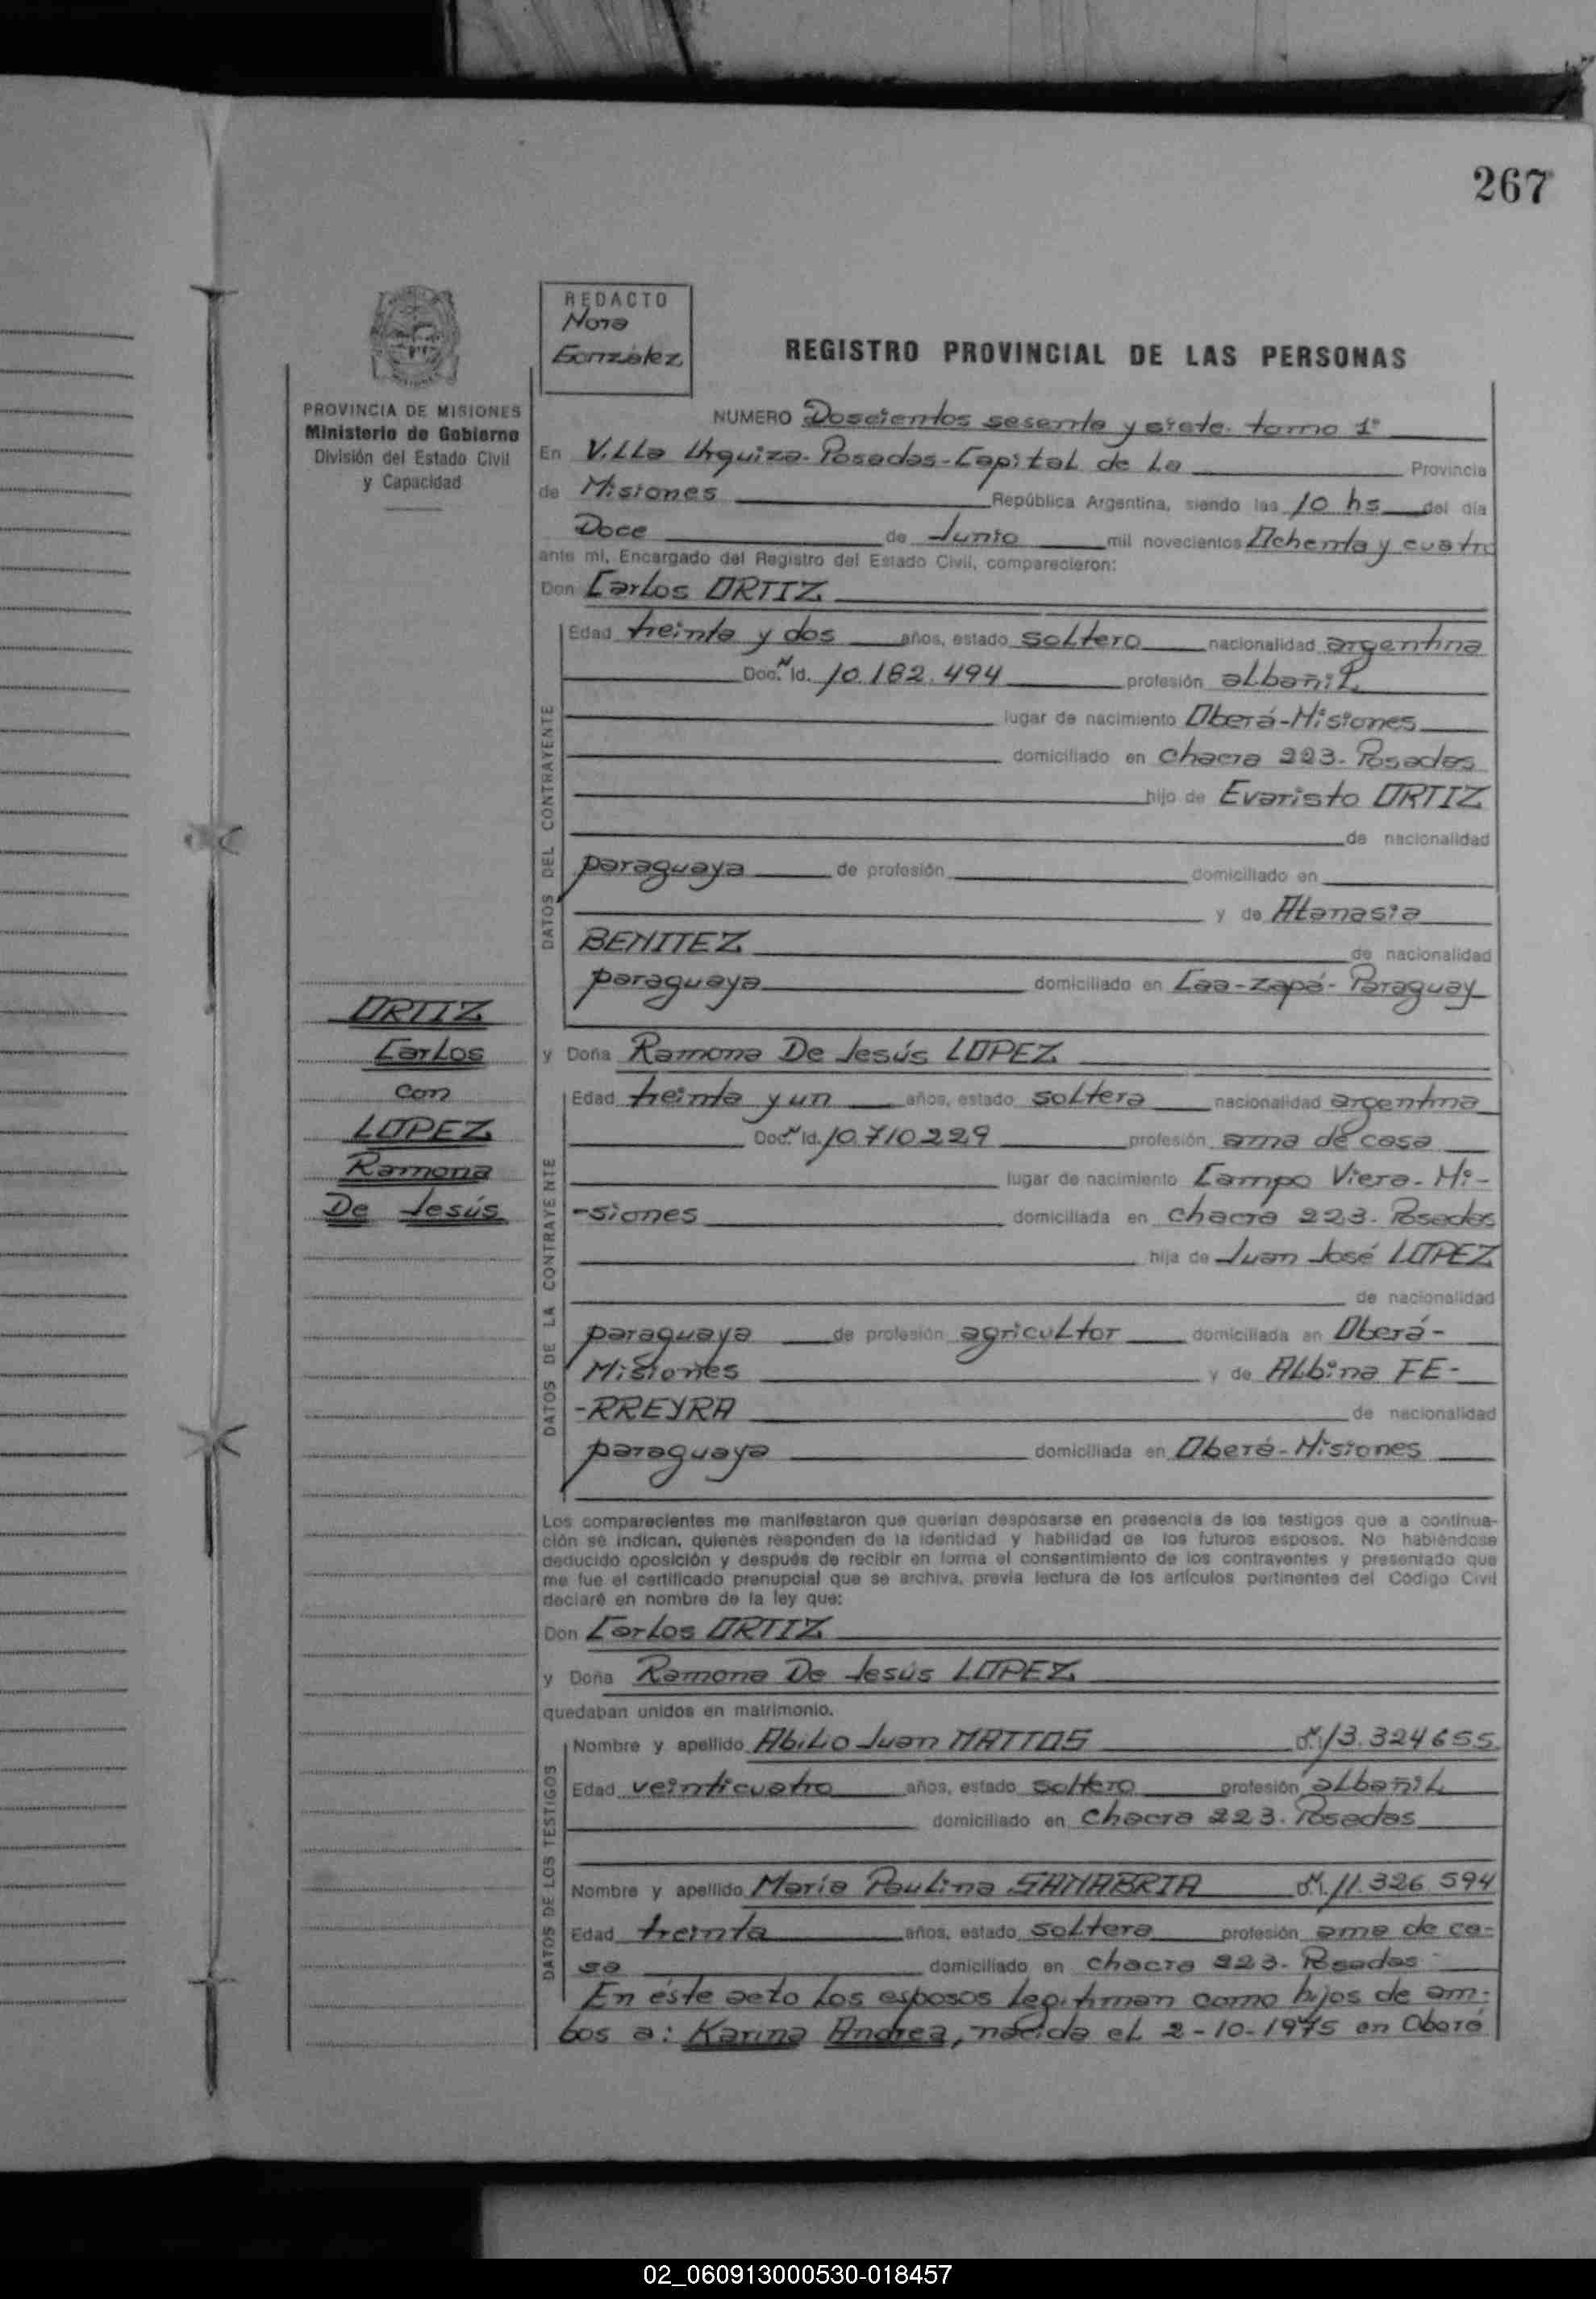 267
REDACTO
Nora
González
REGISTRO PROVINCIAL DE LAS PERSONAS
PROVINCIA DE MISIONES
Ministerio de Gobierno
División del Estado Civil
y Capacidad
NUMERO Doscientos sesenta y siete. tomo 1º
En Villa Urquiza-Posadas-Capital de La Provincia
de Misiones República Argentina, siendo las 10 hs del día
Doce de Junio mil novecientos Ochenta y cuatro
ante mí, Encargado del Registro del Estado Civil, comparecieron:
Don Carlos ORTIZ
DATOS DEL CONTRAYENTE
Edad treinta y dos años, estado soltero nacionalidad argentina
Doc. N Id. 10.182.494 profesión albañil
lugar de nacimiento Oberá-Misiones
domiciliado en chacra 223. Posadas
hijo de Evaristo ORTIZ
de nacionalidad
paraguaya de profesión domiciliado en
y de Atanasia
BENITEZ de nacionalidad
paraguaya domiciliado en Caa-zapá-Paraguay
ORTIZ
Carlos
con
LOPEZ
Ramona
De Jesús
y Doña Ramona De Jesús LOPEZ
DATOS DE LA CONTRAYENTE
Edad treinta y un años, estado soltera nacionalidad argentina
Doc. N Id. 10.710.229 profesión ama de casa
lugar de nacimiento Campo Viera-Mi-
-siones domiciliada en chacra 223. Posadas
hija de Juan José LOPEZ
de nacionalidad
paraguaya de profesión agricultor domiciliada en Oberá-
Misiones y de Albina FE-
-RREYRA de nacionalidad
paraguaya domiciliada en Oberá-Misiones
Los comparecientes me manifestaron que querían desposarse en presencia de los testigos que a continua-
ción se indican, quienes responden de la identidad y habilidad de los futuros esposos. No habiéndose
deducido oposición y después de recibir en forma el consentimiento de los contrayentes y presentado que
me fue el certificado prenupcial que se archiva, previa lectura de los artículos pertinentes del Código Civil
declaré en nombre de la ley que:
Don Carlos ORTIZ
y Doña Ramona De Jesús LOPEZ
quedaban unidos en matrimonio.
DATOS DE LOS TESTIGOS
Nombre y apellido Abilio Juan MATTOS 13.324655
Edad veinticuatro años, estado soltero profesión albañil
domiciliado en chacra 223. Posadas
Nombre y apellido María Paulina SANABRIA 11.326.594
Edad treinta años, estado soltera profesión ama de ca-
sa domiciliado en chacra 223. Posadas
En éste acto los esposos legitiman como hijos de am-
bos a: Karina Andrea, nacida el 2-10-1975 en Oberá
02_060913000530-018457